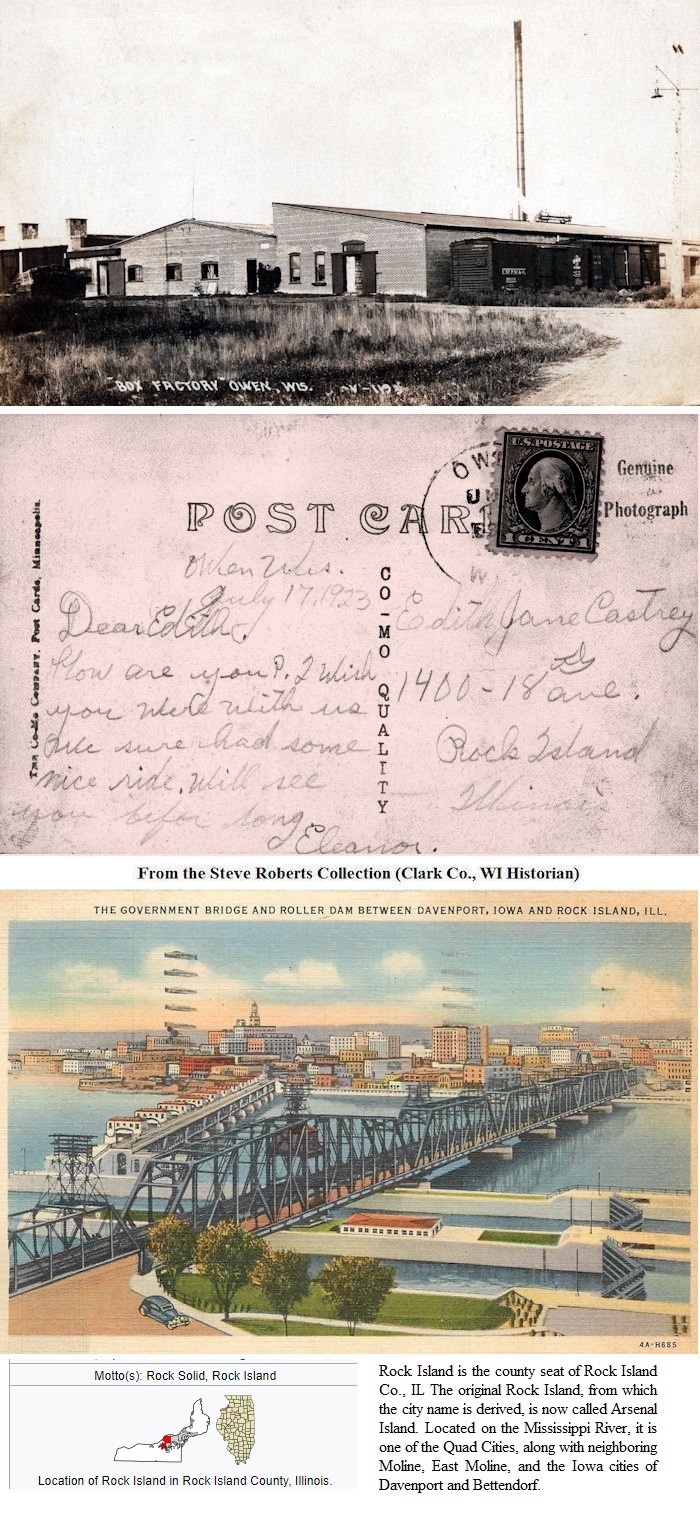 BOX FACTORY OWEN, WIS.
U.S. POSTAGE
Genuine
Photograph
POST CAR
OW
W
CENT
The Co-Mo Company, Post Cards, Minneapolis.
CO-MO QUALITY
Owen Wis.
July 17, 1923
Dear Edith,
How are you?. I wish
you were with us
We sure had some
nice ride. Will see
you befor long.
Eleanor.
Edith Jane Castrey
1400 - 18 ave.
Rock Island
Illinois
From the Steve Roberts Collection (Clark Co., WI Historian)
THE GOVERNMENT BRIDGE AND ROLLER DAM BETWEEN DAVENPORT, IOWA AND ROCK ISLAND, ILL.
4A-H685
Motto(s): Rock Solid, Rock Island
Location of Rock Island in Rock Island County, Illinois.
Rock Island is the county seat of Rock Island
Co., IL The original Rock Island, from which
the city name is derived, is now called Arsenal
Island. Located on the Mississippi River, it is
one of the Quad Cities, along with neighboring
Moline, East Moline, and the Iowa cities of
Davenport and Bettendorf.